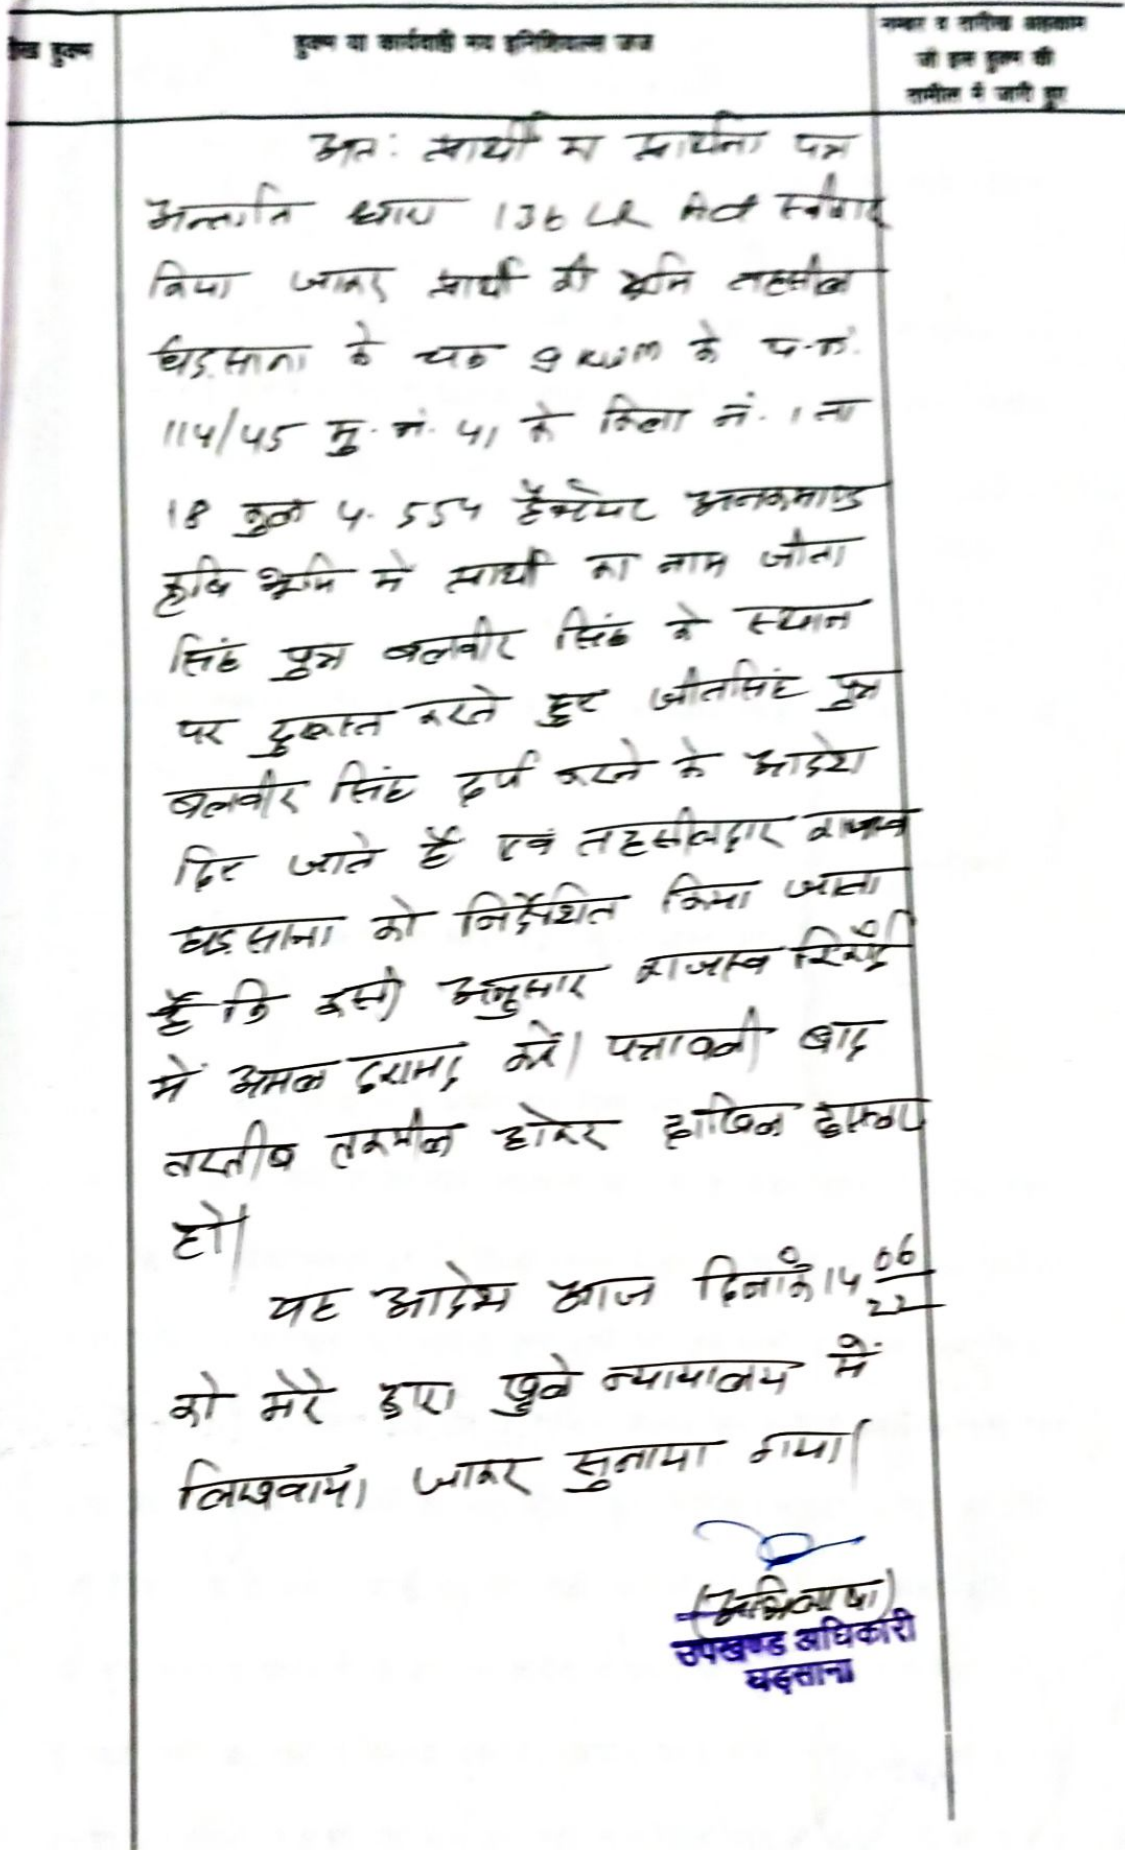 हुक्म
हुक्म या कार्यवाही मय इनिशियल्स जज
नम्बर व तारीख अहकाम
जो इस हुक्म की
तामील में जारी हुए
अतः प्रार्थी का प्रार्थना पत्र
अन्तर्गत धारा 136 LR Act स्वीकार
किया जाकर प्रार्थी की भूमि तहसील
घड़साना के चक 9 KWM के प.नं.
114/45 मु.नं. 41 के किला नं. 1 ता
18 कुल 4.554 हैक्टेयर अनकमाण्ड
कृषि भूमि में प्रार्थी का नाम जीता
सिंह पुत्र बलवीर सिंह के स्थान
पर दुरूस्त करते हुए जीतसिंह पुत्र
बलवीर सिंह दर्ज करने के आदेश
दिए जाते हैं एवं तहसीलदार राजस्व
घड़साना को निर्देशित किया जाता
है कि इसी अनुसार राजस्व रिकॉर्ड
में अमल दरामद करें। पत्रावली बाद
तरतीब तकमील होकर दाखिल दफ्तर
हो।
यह आदेश आज दिनांक 14 06/22
को मेरे द्वारा खुले न्यायालय में
लिखवाया जाकर सुनाया गया।
(अभिलाषा)
उपखण्ड अधिकारी
घड़साना